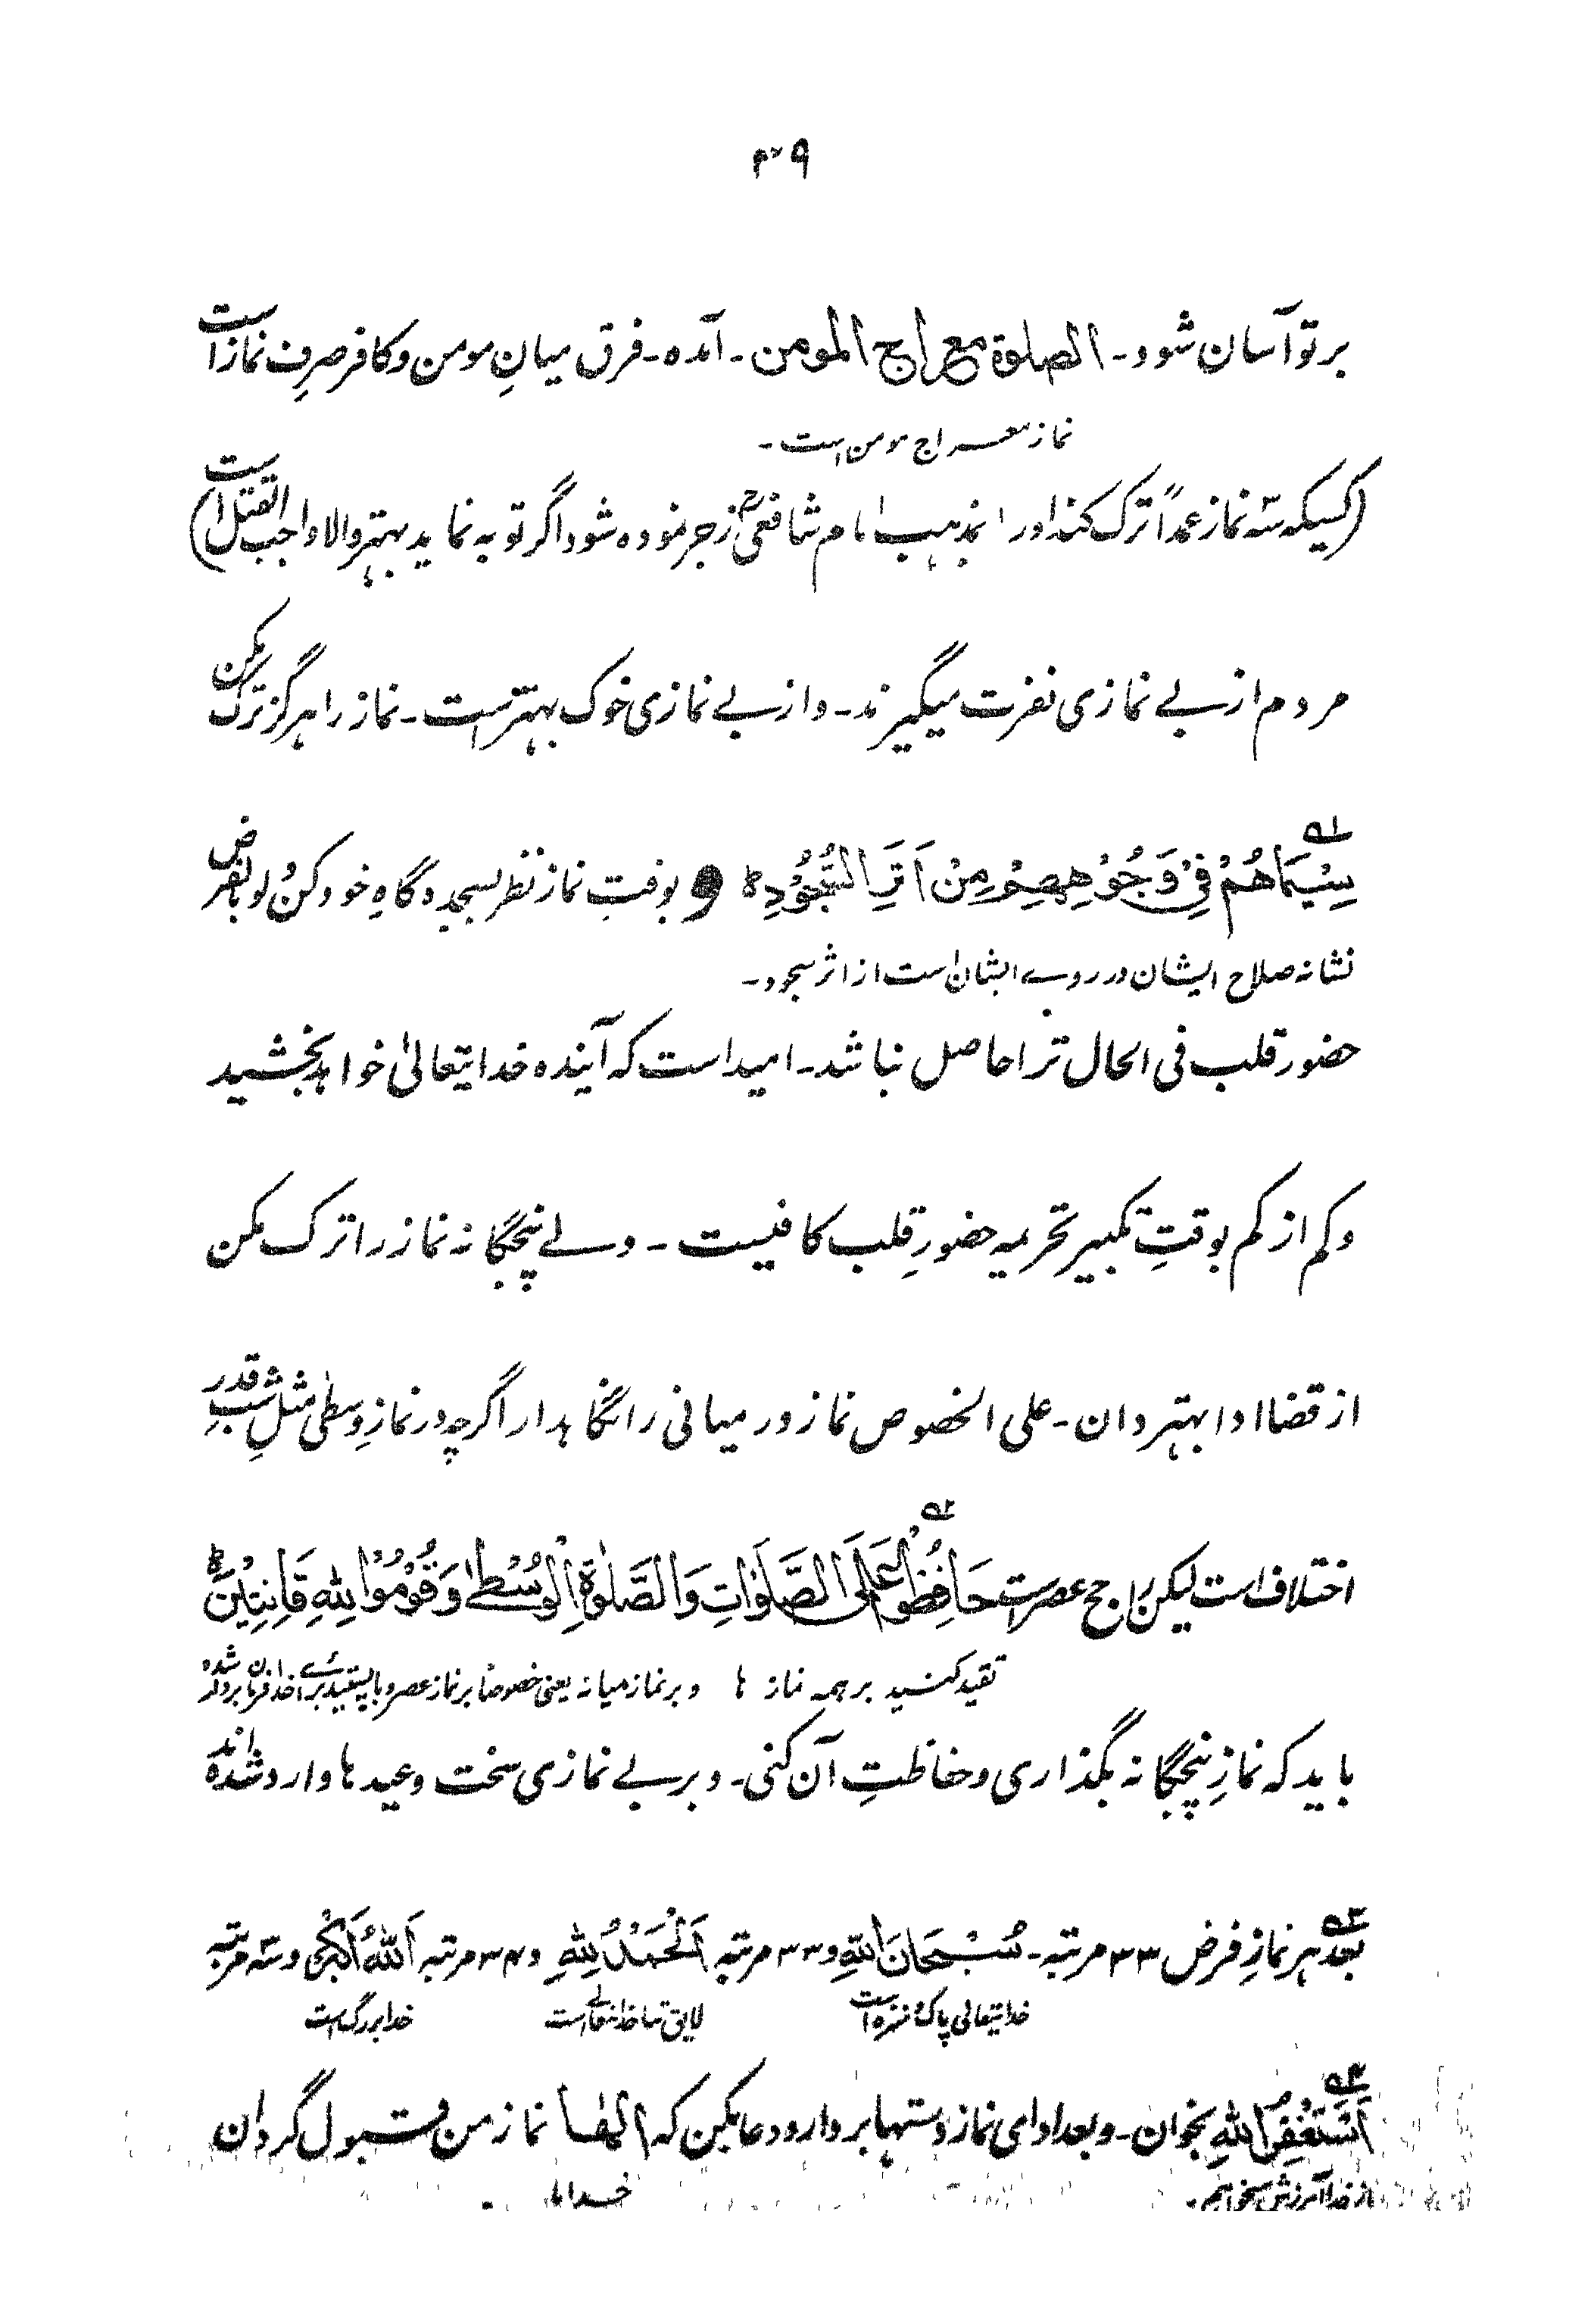 ۴۹
بر تو آسان شود۔ الصلوۃ معراج المومن۔ آمدہ۔ فرق میانِ مومن و کافر صرفِ نماز است
نماز معراج مومن است۔
(کسیکہ سہ نماز عمداً ترک کند اورا بمذہب امام شافعیؒ زجر نمودہ شود اگر توبہ نماید بہتر والا واجب القتل است)
مردم از بے نمازی نفرت میگیرند۔ و از بے نمازی خوک بہتر است۔ نماز را ہرگز ترک مکن
سِیْمَاهُمْ فِیْ وُجُوْهِهِمْ مِنْ اَثَرِ السُّجُوْدِ ؕ و بوقتِ نماز نظر بسجدہ گاہِ خود کن و لو بالفرض
نشانہ صلاح ایشان در روے ایشان است از اثر سجود۔
حضور قلب فی الحال ترا حاصل نباشد۔ امید است کہ آیندہ خدایتعالیٰ خواہد بخشید
و کم از کم بوقتِ تکبیر تحریمہ حضورِ قلب کافیست۔ ولے پنجگانہ نماز را ترک مکن
از قضا ادا بہتر دان۔ علی الخصوص نماز درمیانی را نگاہدار اگرچہ در نمازِ وسطی مثلِ شبِ قدر
اختلاف است لیکن راجح عصر است حَافِظُوْا عَلَی الصَّلَوٰاتِ وَالصَّلوٰةِ الْوُسْطٰی وَقُوْمُوْا لِلّٰهِ قَانِتِیْنَ ؕ
تقید کنید بر ہمہ نماز ہا و بر نماز میانہ یعنی خصوصًا بر نماز عصر و بایستید براے خدا فرمانبردار شدہ
باید کہ نمازِ پنجگانہ بگذاری و حفاظتِ آن کنی۔ و بر بے نمازی سخت وعید ہا وارد شدہ اند
بعد ہر نمازِ فرض ۳۳ مرتبہ۔ سُبْحَانَ اللّٰهِ و ۳۳ مرتبہ اَلْحَمْدُ لِلّٰهِ و ۳۴ مرتبہ اَللّٰهُ اَکْبَرُ و سہ مرتبہ
خدایتعالی پاک و منزہ است لایق ثنا خدایتعالے است خدا بزرگ است
اَسْتَغْفِرُ اللّٰهَ بخوان۔ و بعد ادای نماز دستہا بردار و دعا بکن کہ الٰهنا نماز من قبول گردان
از خدا آمرزش میخواہم۔ خداما